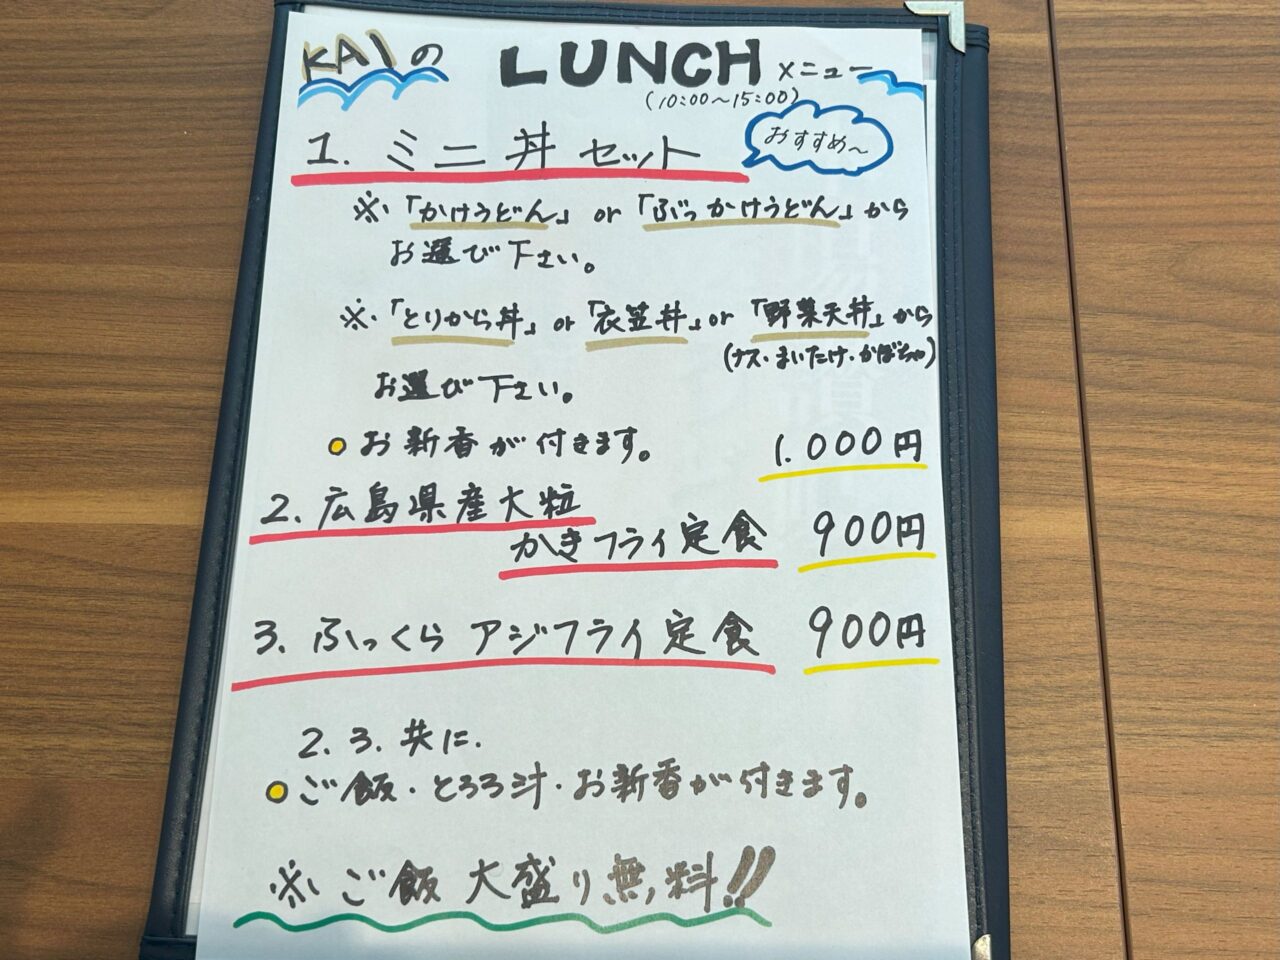 KAIの LUNCH メニュー
(10:00〜15:00)
1. ミニ丼セット
おすすめ〜
※・「かけうどん」or「ぶっかけうどん」から
お選び下さい。
※・「とりから丼」or「衣笠丼」or「野菜天丼」から
(ナス・まいたけ・かぼちゃ)
お選び下さい。
お新香が付きます。 1.000円
2. 広島県産大粒
かきフライ定食 900円
3. ふっくら アジフライ定食 900円
2. 3. 共に.
ご飯・とろろ汁・お新香が付きます。
※・ご飯 大盛り無料!!